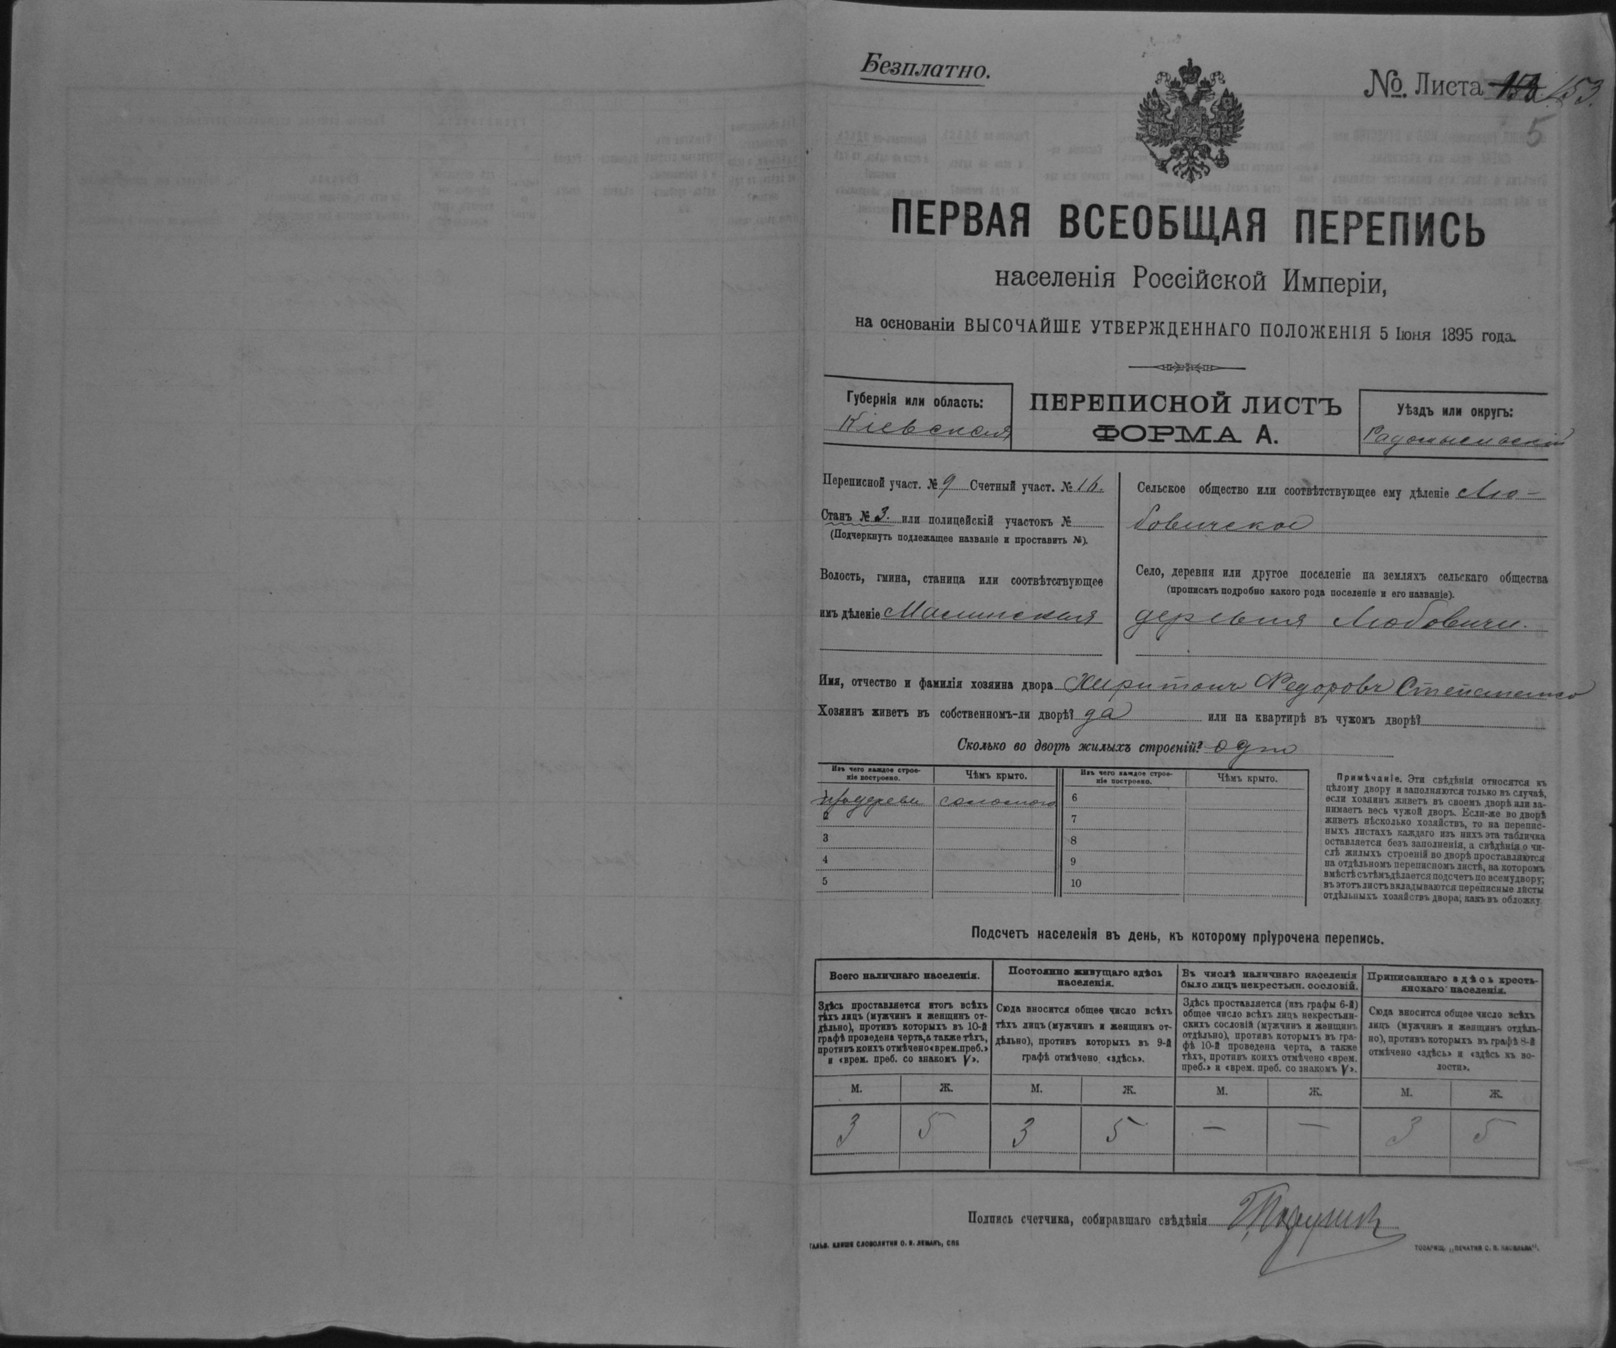 Безплатно.
№ Листа 153.
5
ПЕРВАЯ ВСЕОБЩАЯ ПЕРЕПИСЬ
населенія Россійской Имперіи,
на основаніи ВЫСОЧАЙШЕ УТВЕРЖДЕННАГО ПОЛОЖЕНІЯ 5 Іюня 1895 года.
Губернія или область:
Кіевская
ПЕРЕПИСНОЙ ЛИСТЪ
ФОРМА А.
Уѣздъ или округъ:
Радомысльскій
Переписной участ. № 9 Счетный участ. №
Станъ № 3. или полицейскій участокъ №
(Подчеркнуть подлежащее названіе и проставить №).
Волость, гмина, станица или соотвѣтствующее
имъ дѣленіе Малинская
Сельское общество или соотвѣтствующее ему дѣленіе Лю-
бовичское
Село, деревня или другое поселеніе на земляхъ сельскаго общества
(прописать подробно какого рода поселеніе и его названіе).
деревня Любовичи.
Имя, отчество и фамилія хозяина двора Харитонъ Федоровъ Степаненко
Хозяинъ живетъ въ собственномъ-ли дворѣ? да или на квартирѣ въ чужомъ дворѣ?
Сколько во дворѣ жилыхъ строеній? одно
Изъ чего каждое строе-
ніе построено.
Чѣмъ крыто.
Изъ чего каждое строе-
ніе построено.
Чѣмъ крыто.
соломою
6
2
7
3
8
4
9
5
10
Примѣчаніе. Эти свѣдѣнія относятся къ
цѣлому двору и заполняются только въ случаѣ,
если хозяинъ живетъ въ своемъ дворѣ или за-
нимаетъ весь чужой дворъ. Если-же во дворѣ
живетъ нѣсколько хозяйствъ, то на перепис-
ныхъ листахъ каждаго изъ нихъ эта табличка
оставляется безъ заполненія, а свѣдѣнія о чи-
слѣ жилыхъ строеній во дворѣ проставляются
на отдѣльномъ переписномъ листѣ, на которомъ
вмѣстѣ съ тѣмъ дѣлается подсчетъ по всему двору;
въ этотъ листъ вкладываются переписные листы
отдѣльныхъ хозяйствъ двора, какъ въ обложку.
Подсчетъ населенія въ день, къ которому пріурочена перепись.
Всего наличнаго населенія.
Здѣсь проставляется итогъ всѣхъ
тѣхъ лицъ (мужчинъ и женщинъ от-
дѣльно), противъ которыхъ въ 10-й
графѣ проведена черта, а также тѣхъ,
противъ коихъ отмѣчено «врем. преб.»
и «врем. преб. со знакомъ V».
Постоянно живущаго здѣсь
населенія.
Сюда вносится общее число всѣхъ
тѣхъ лицъ (мужчинъ и женщинъ от-
дѣльно), противъ которыхъ въ 9-й
графѣ отмѣчено «здѣсь».
Въ числѣ наличнаго населенія
было лицъ некрестьян. сословій.
Здѣсь проставляется (изъ графы 6-й)
общее число всѣхъ лицъ некрестьян-
скихъ сословій (мужчинъ и женщинъ
отдѣльно), противъ которыхъ въ гра-
фѣ 10-й проведена черта, а также
тѣхъ, противъ коихъ отмѣчено «врем.
преб.» и «врем. преб. со знакомъ V».
Приписаннаго здѣсь кресть-
янскаго населенія.
Сюда вносится общее число всѣхъ
лицъ (мужчинъ и женщинъ отдѣль-
но), противъ которыхъ въ графѣ 8-й
отмѣчено «здѣсь» и «здѣсь къ во-
лости».
М. Ж. М. Ж. М. Ж. М. Ж.
3 5 3 5 — — 3 5
Подпись счетчика, собиравшаго свѣдѣнія
ГАЛЬВ. КЛИШЕ СЛОВОЛИТНИ О. И. ЛЕМАНЪ, СПБ
ТОВАРИЩ. „ПЕЧАТНЯ С. П. ЯКОВЛЕВА“.